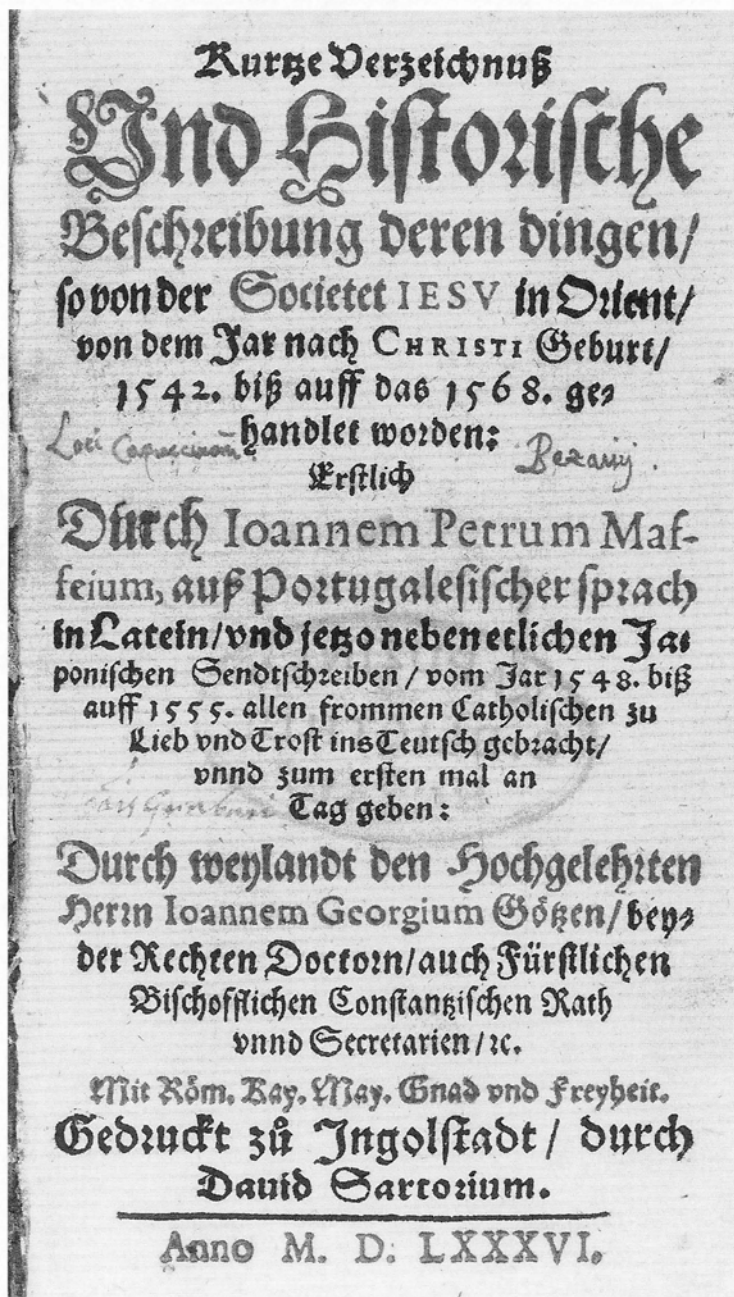 Kurtze Verzeichnuß
Vnd Historische
Beschreibung deren dingen/
so von der Societet IESV in Orient/
von dem Jar nach CHRISTI Geburt/
1542. biß auff das 1568. ge-
handlet worden:
Loci Capucinorū. 
Erstlich
Durch Ioannem Petrum Maf-
feium, auß Portugalesischer sprach
in Latein/vnd jetzo neben etlichen Ja-
ponischen Sendtschreiben / vom Jar 1548. biß
auff 1555. allen frommen Catholischen zu
Lieb vnd Trost ins Teutsch gebracht/
vnnd zum ersten mal an
Tag geben:
Durch weylandt den Hochgelehrten
Herrn Ioannem Georgium Götzen/ bey-
der Rechten Doctorn/auch Fürstlichen
Bischofflichen Constantzischen Rath
vnnd Secretarien/ꝛc.
Mit Röm. Kay. May. Gnad vnd Freyheit.
Gedruckt zů Ingolstadt / durch
Dauid Sartorium.
Anno M. D. LXXXVI.